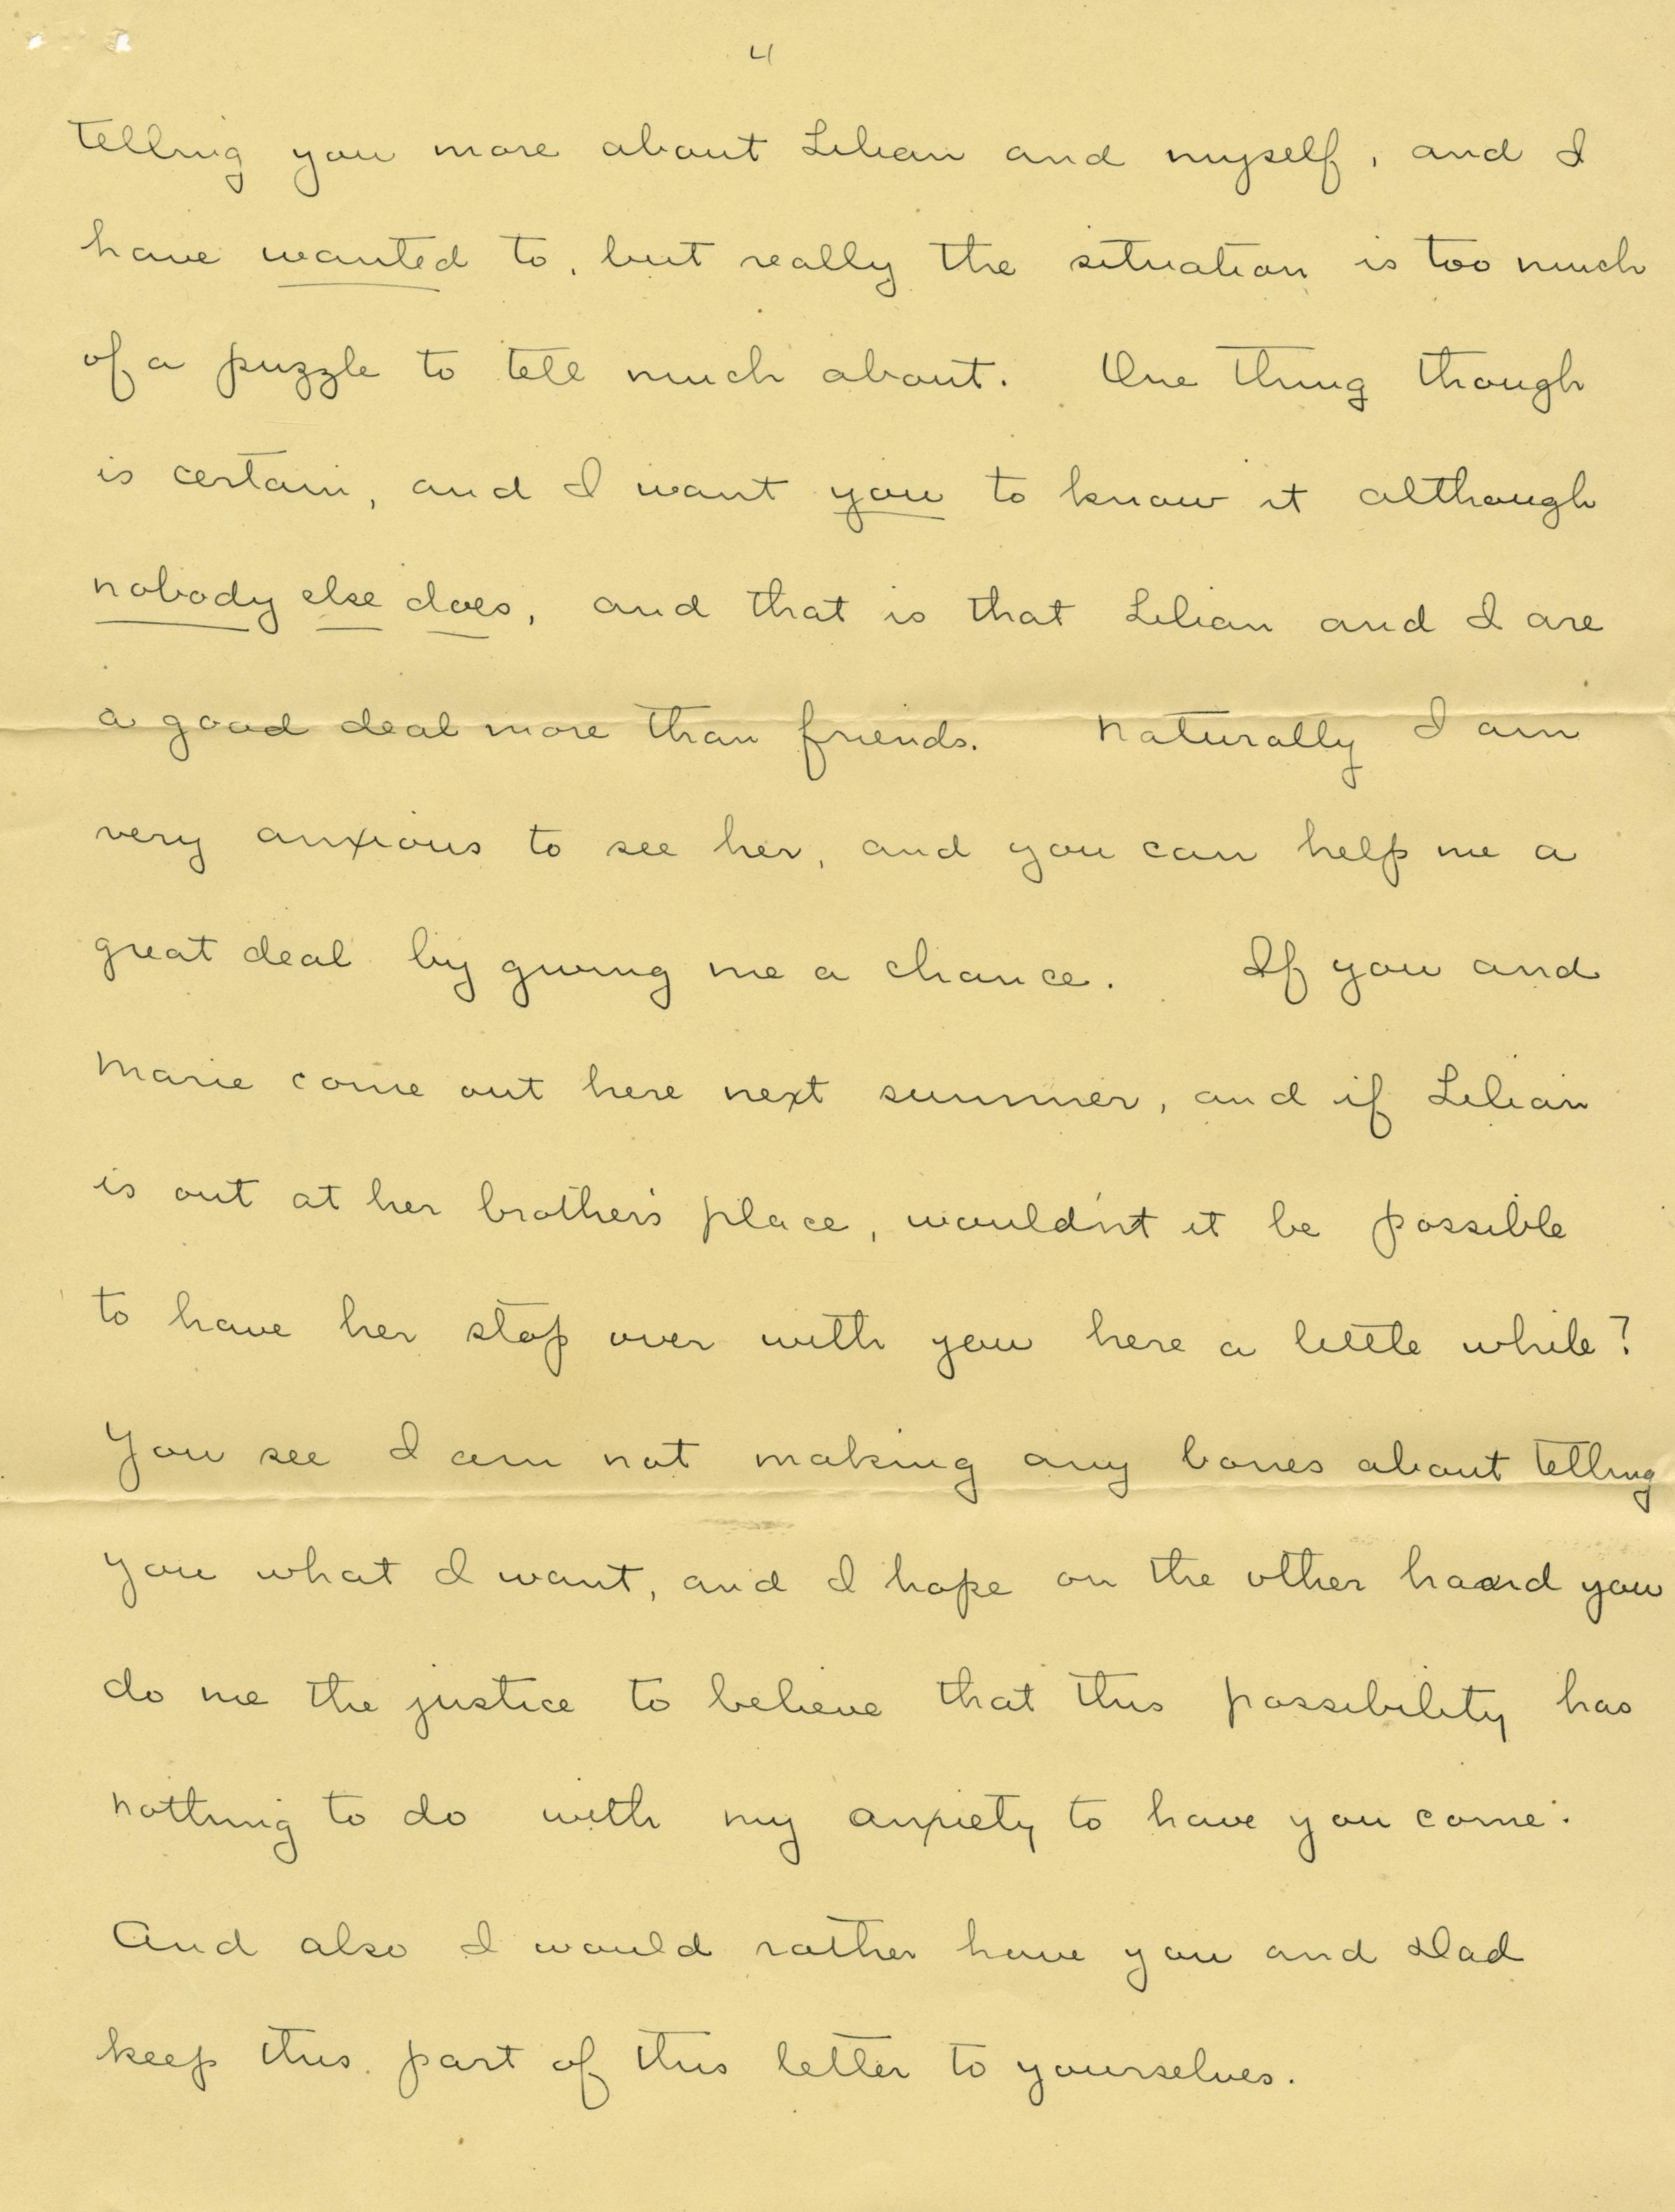 4
telling you more about Lilian and myself, and I
have wanted to, but really the situation is too much
of a puzzle to tell much about. One thing though
is certain, and I want you to know it although
nobody else does, and that is that Lilian and I are
a good deal more than friends. Naturally I am
very anxious to see her, and you can help me a
great deal by giving me a chance. If you and
Marie come out here next summer, and if Lilian
is out at her brother's place, would'nt it be possible
to have her stop over with you here a little while?
You see I am not making any bones about telling
you what I want, and I hope on the other hand you
do me the justice to believe that this possibility has
nothing to do with my anxiety to have you come.
And also I would rather have you and Dad
keep this part of this letter to yourselves.